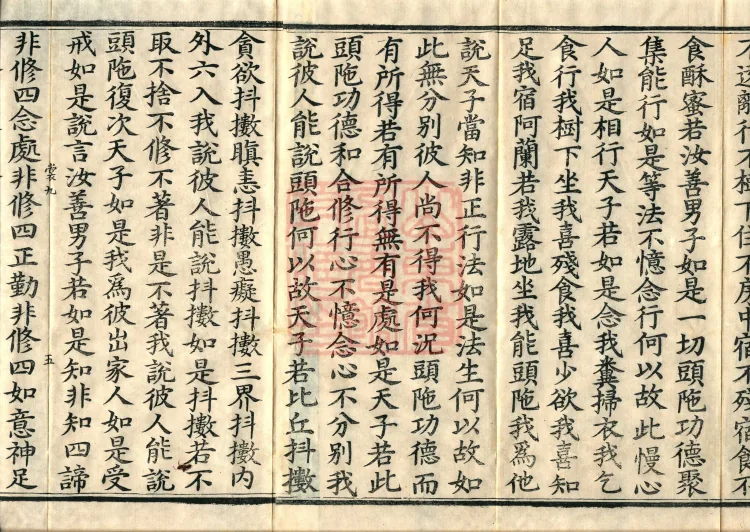 不遠離行不樹下住不房中宿不殘宿食不
食酥蜜若汝善男子如是一切頭陁功德聚
集能行如是等法不憶念行何以故此慢心
人如是相行天子若如是念我糞掃衣我乞
食行我樹下坐我喜殘食我喜少欲我喜知
足我宿阿蘭若我露地坐我能頭陁我為他
說天子當知非正行法如是法生何以故如
此無分别彼人尚不得我何況頭陁功德而
有所得若有所得無有是處如是天子若此
頭陁功德和合修行心不憶念心不分别我
說彼人能說頭陁何以故天子若比丘抖擻
貪欲抖擻瞋恚抖擻愚癡抖擻三界抖擻内
外六入我說彼人能說抖擻如是抖擻若不
取不捨不修不著非是不著我說彼人能說
頭陁復次天子如是我爲彼出家人如是受
戒如是說言汝善男子若如是知非知四諦
裳九 五
非修四念處非修四正勤非修四如意神足